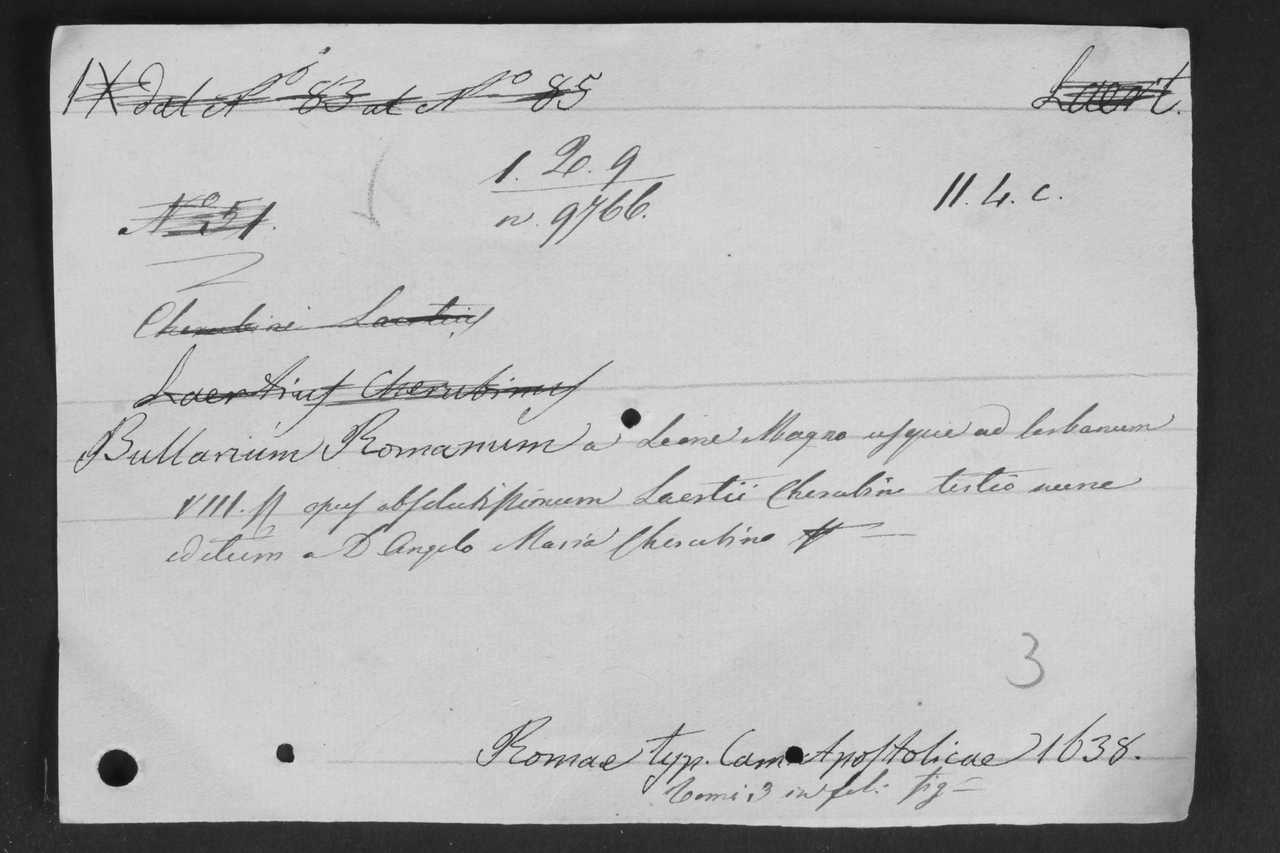 IX dal Nº 83 al Nº 85
Laert.
1. 2. 9
n. 9766.
11. 4. c.
Nº 51.
Cherubini Laertius
Laertius Cherubinus
Bullarium Romanum a Leone Magno usque ad Urbanum
VIII. opus absolutissimum Laertii Cherubini tertio nunc
editum a D Angelo Maria Cherubino
3
Romae typ. Cam. Apostolicae 1638.
Tomi 3 in fol: fig=